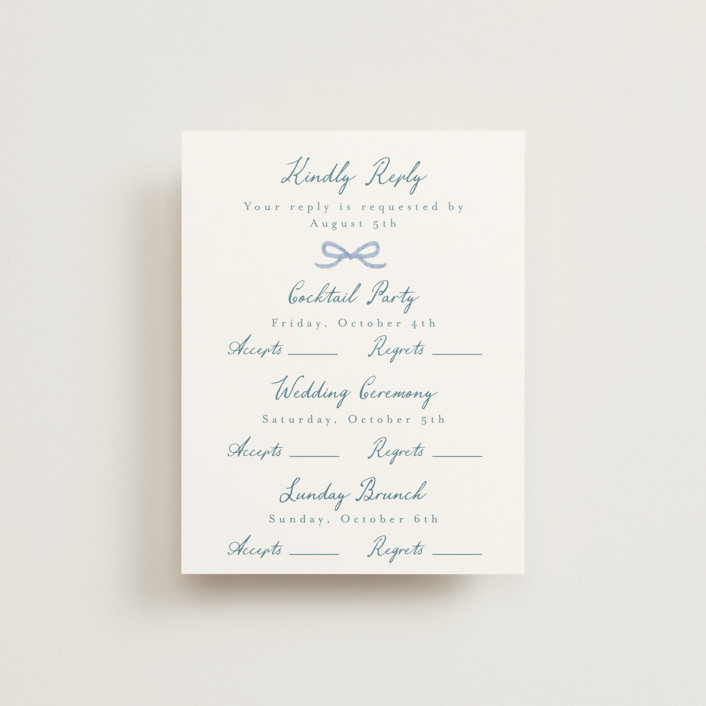 Kindly Reply
Your reply is requested by
August 5th
Cocktail Party
Friday, October 4th
Accepts ______ Regrets ______
Wedding Ceremony
Saturday, October 5th
Accepts ______ Regrets ______
Sunday Brunch
Sunday, October 6th
Accepts ______ Regrets ______